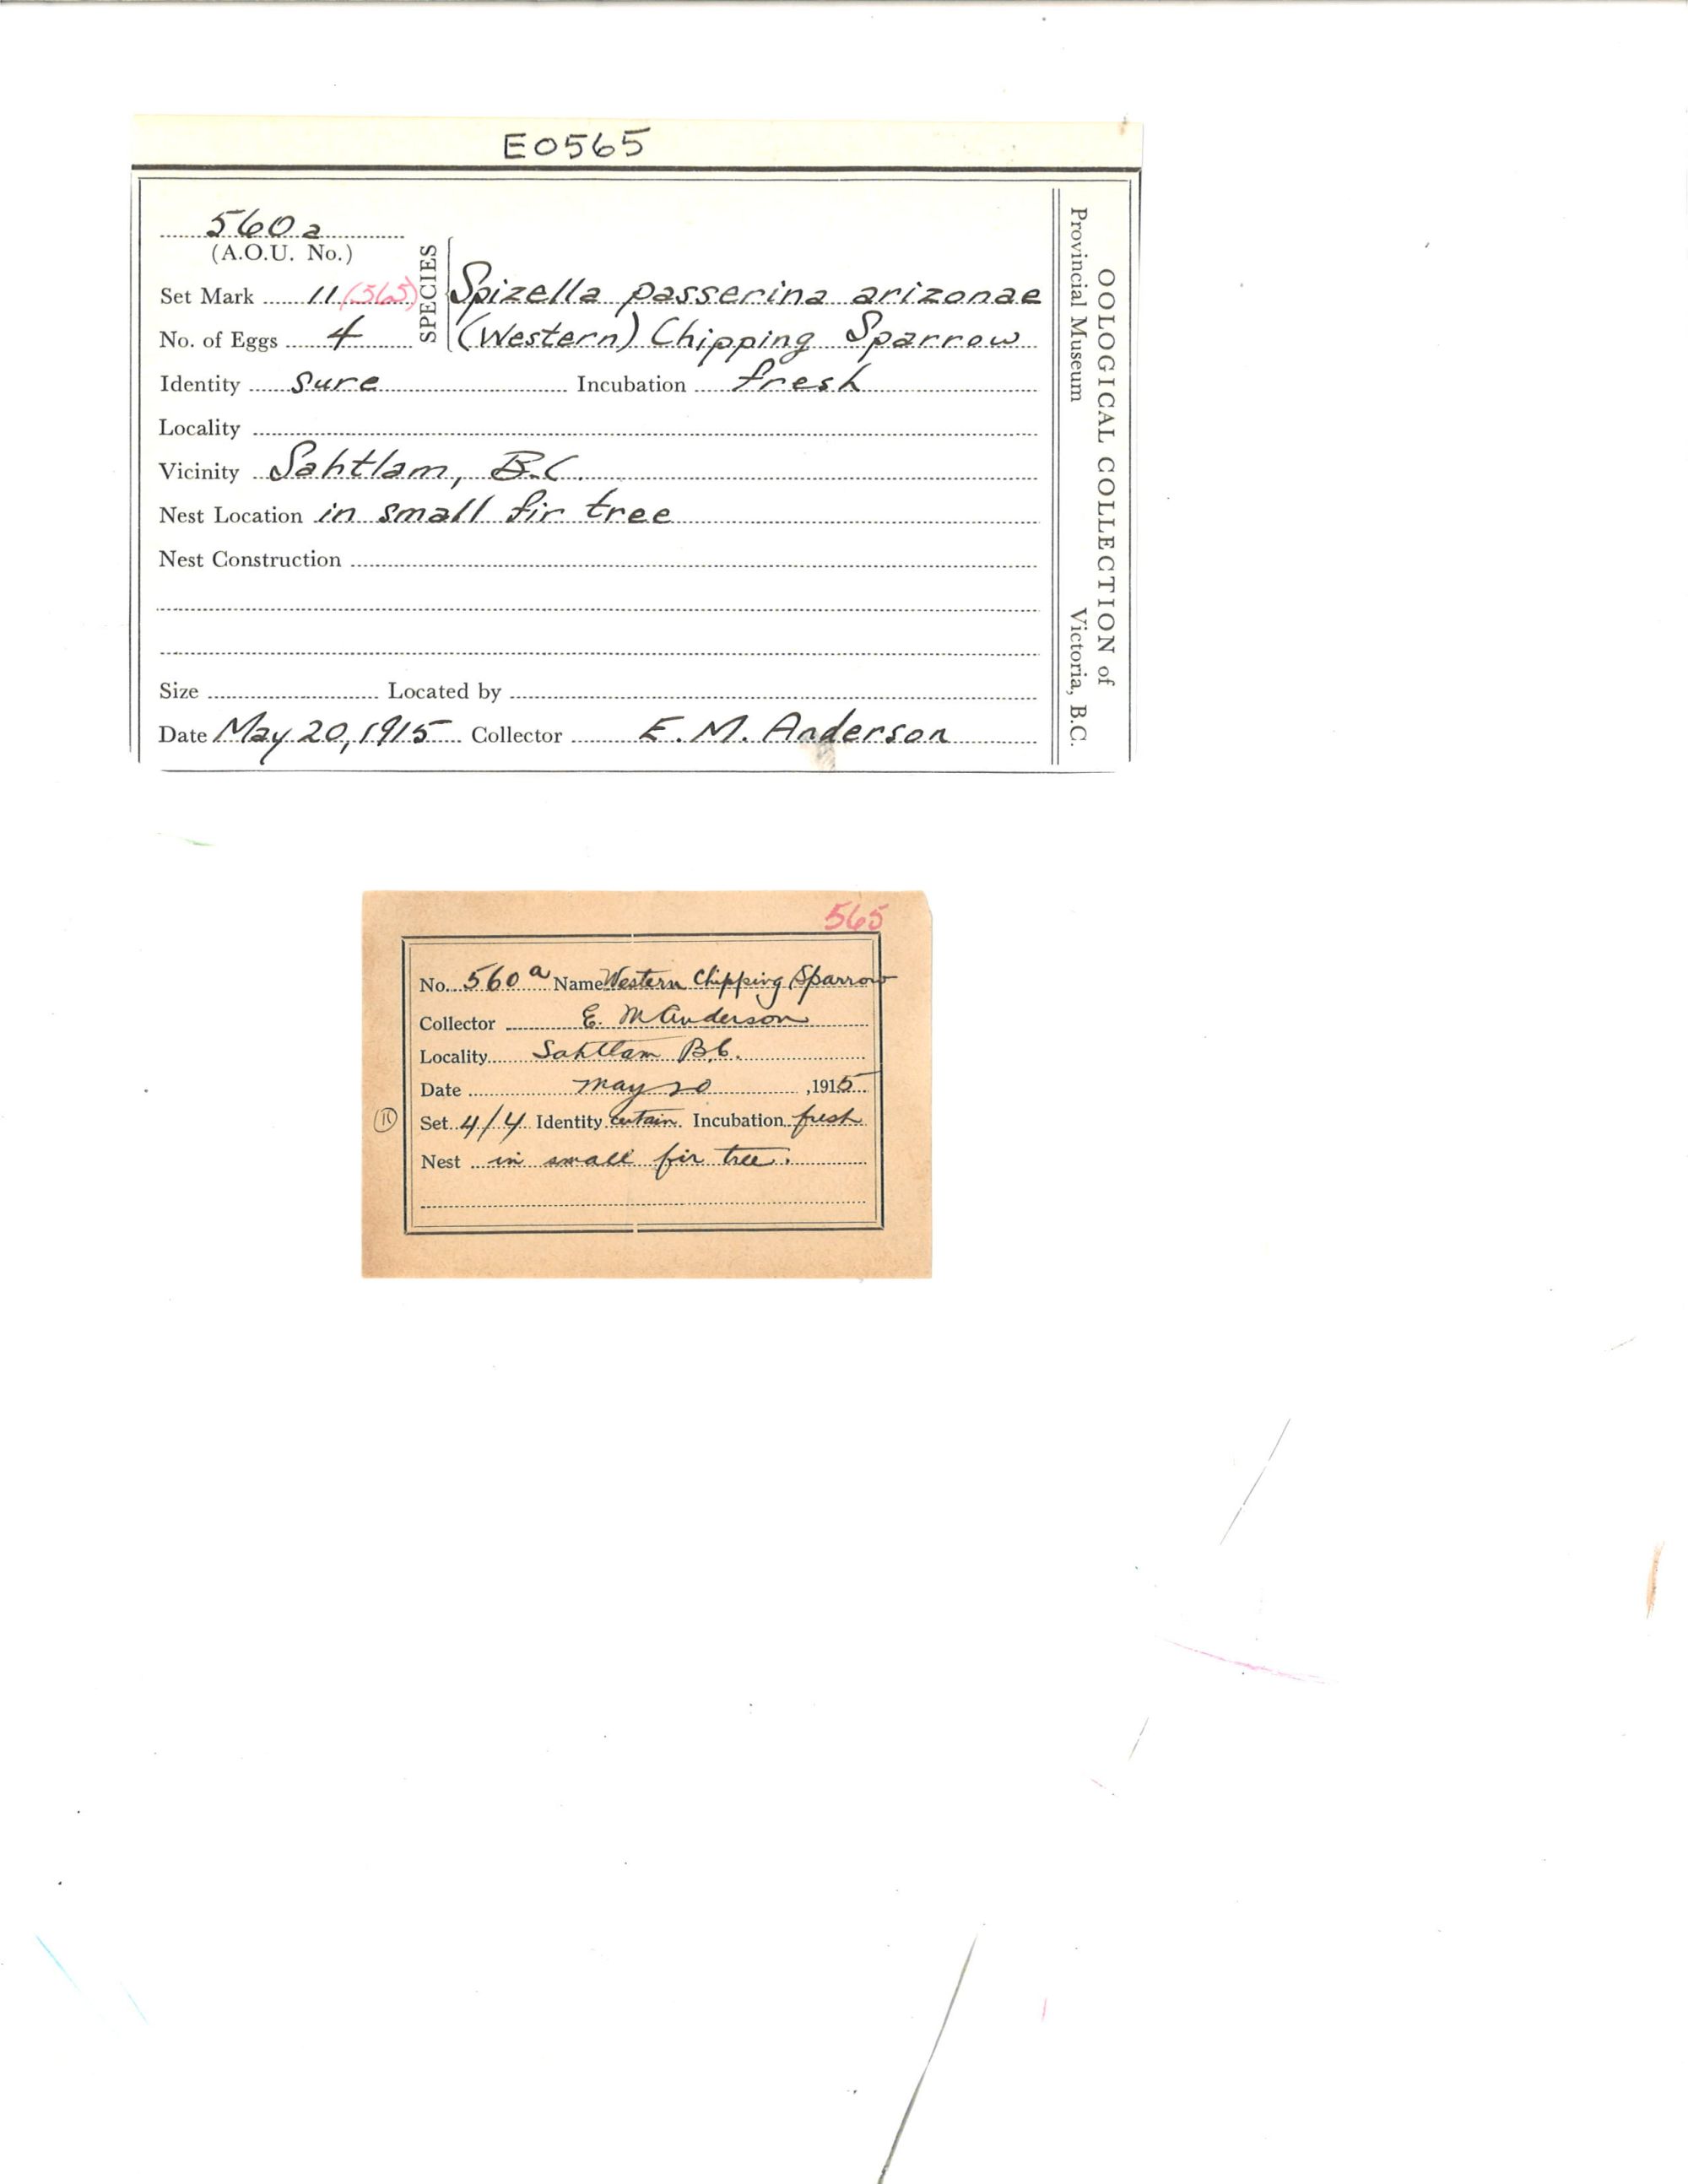 E0565
560a
(A.O.U. No.)
Set Mark 11 (565)
No. of Eggs 4
SPECIES
Spizella passerina arizonae
(Western) Chipping Sparrow
Identity sure Incubation fresh
Locality
Vicinity Sahtlam, B.C.
Nest Location in small fir tree
Nest Construction
Size Located by
Date May 20, 1915 Collector E. M. Anderson
OOLOGICAL COLLECTION of
Provincial Museum Victoria, B.C.
565
No. 560a Name Western Chipping Sparrow
Collector E. M Anderson
Locality Sahtlam B.C.
Date May 20, 1915
Set 4/4 Identity certain. Incubation fresh
Nest in small fir tree.